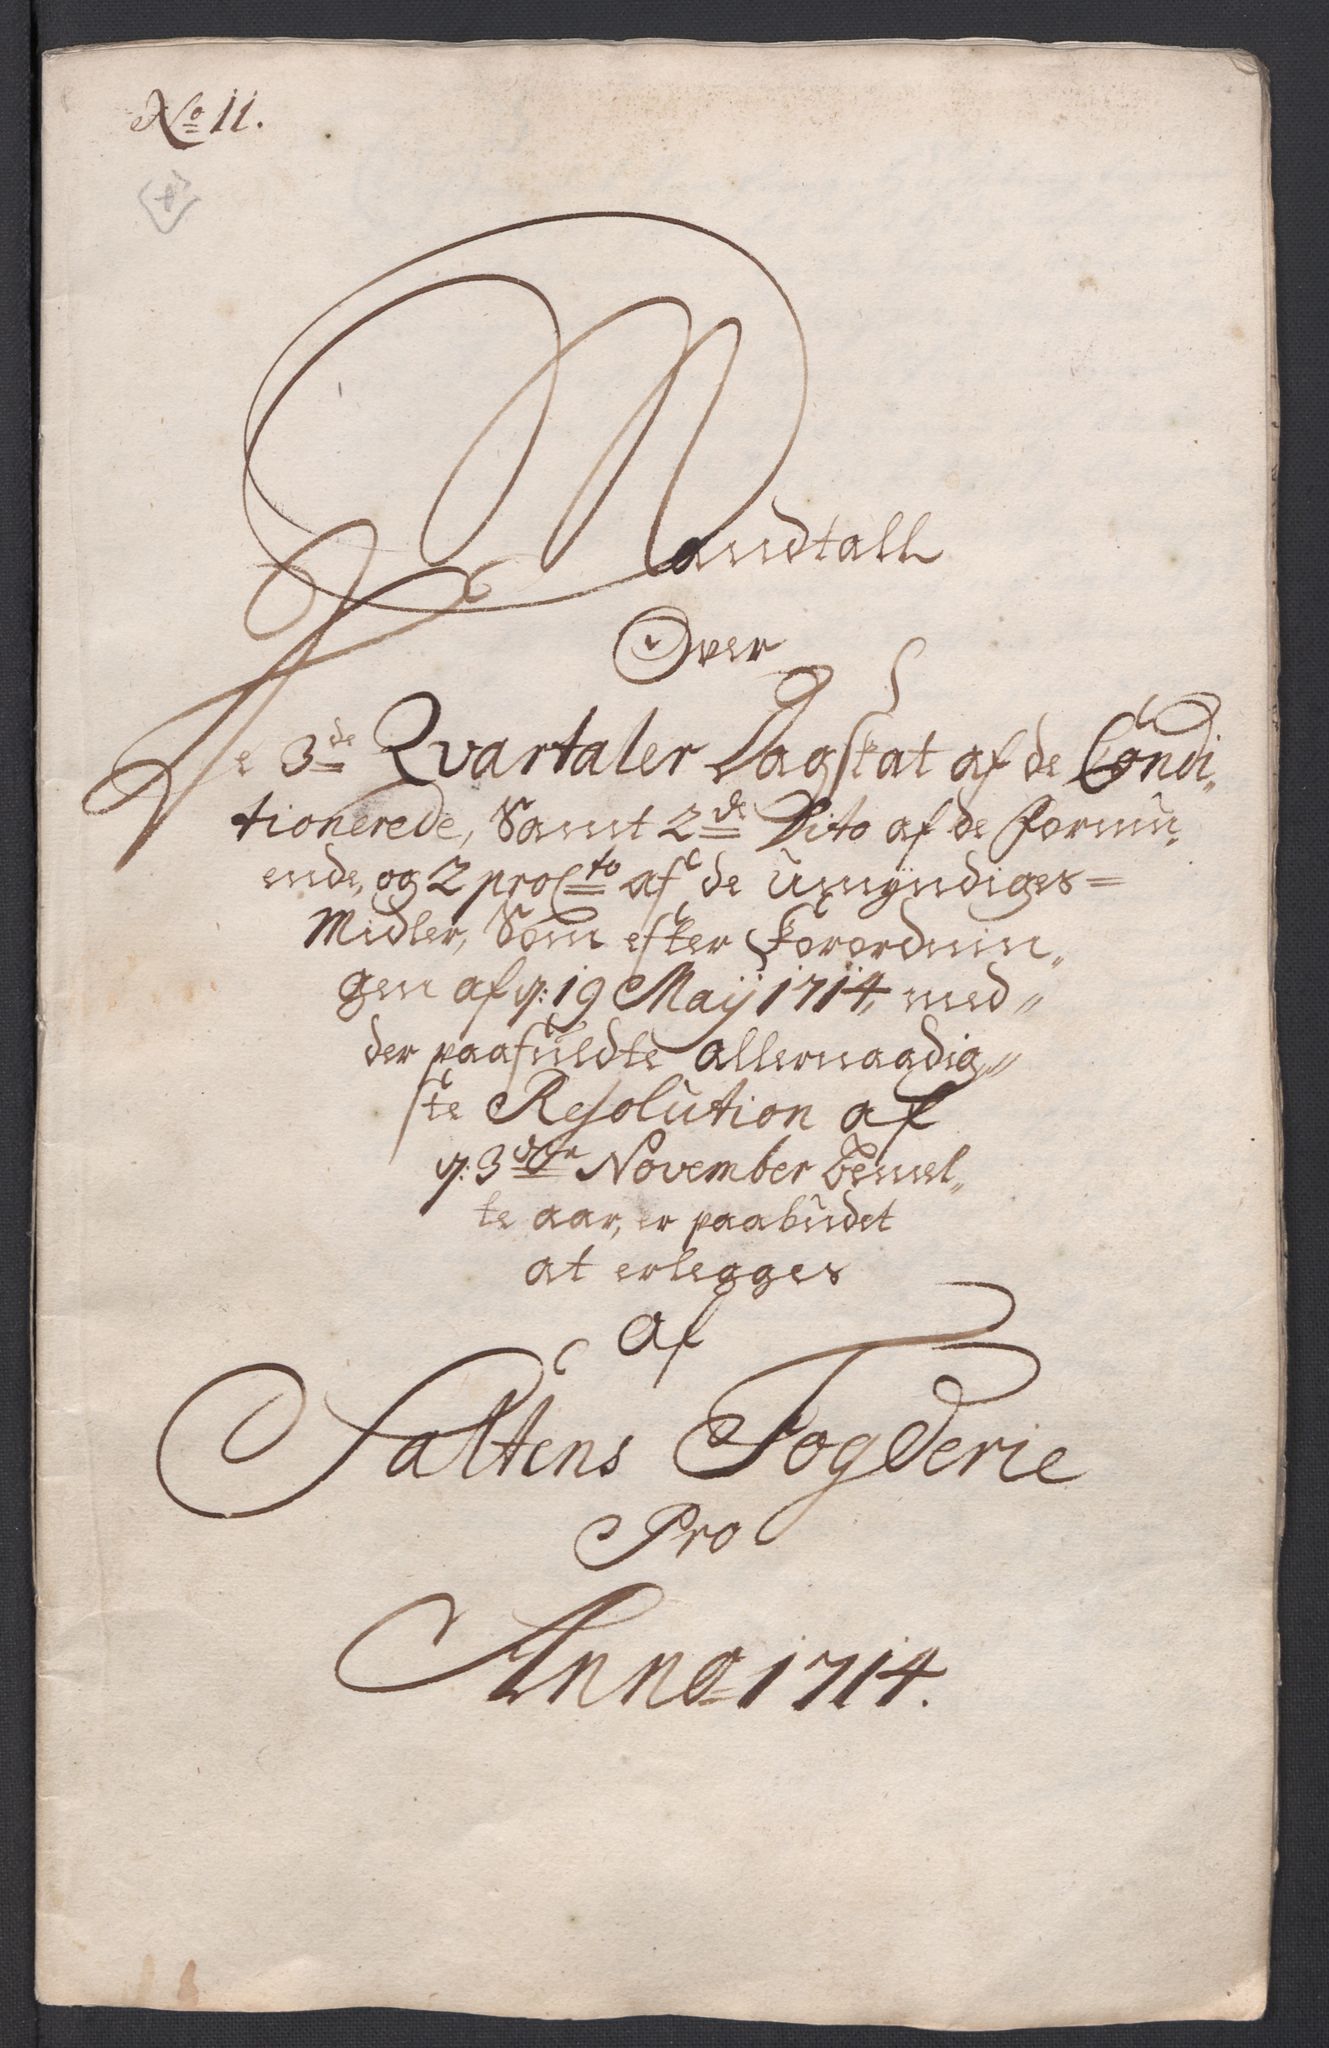 No 11.
Mandtall
Over
De 3de Qvartaler Dagskat af de Condi„
tionerede, Samt 2de Dito af de Formu„
ende, og 2 proCto af de Umÿndiges=
Midler, Som efter Forordnin„
gen af d: 19 Maÿ 1714, med„
der paafuldte allernaadig„
ste Resolution af
d: 3die November bemel„
te aar, er paabudet
at erlegges
af
Saltens Fogderie
Pro
Anno 1714.